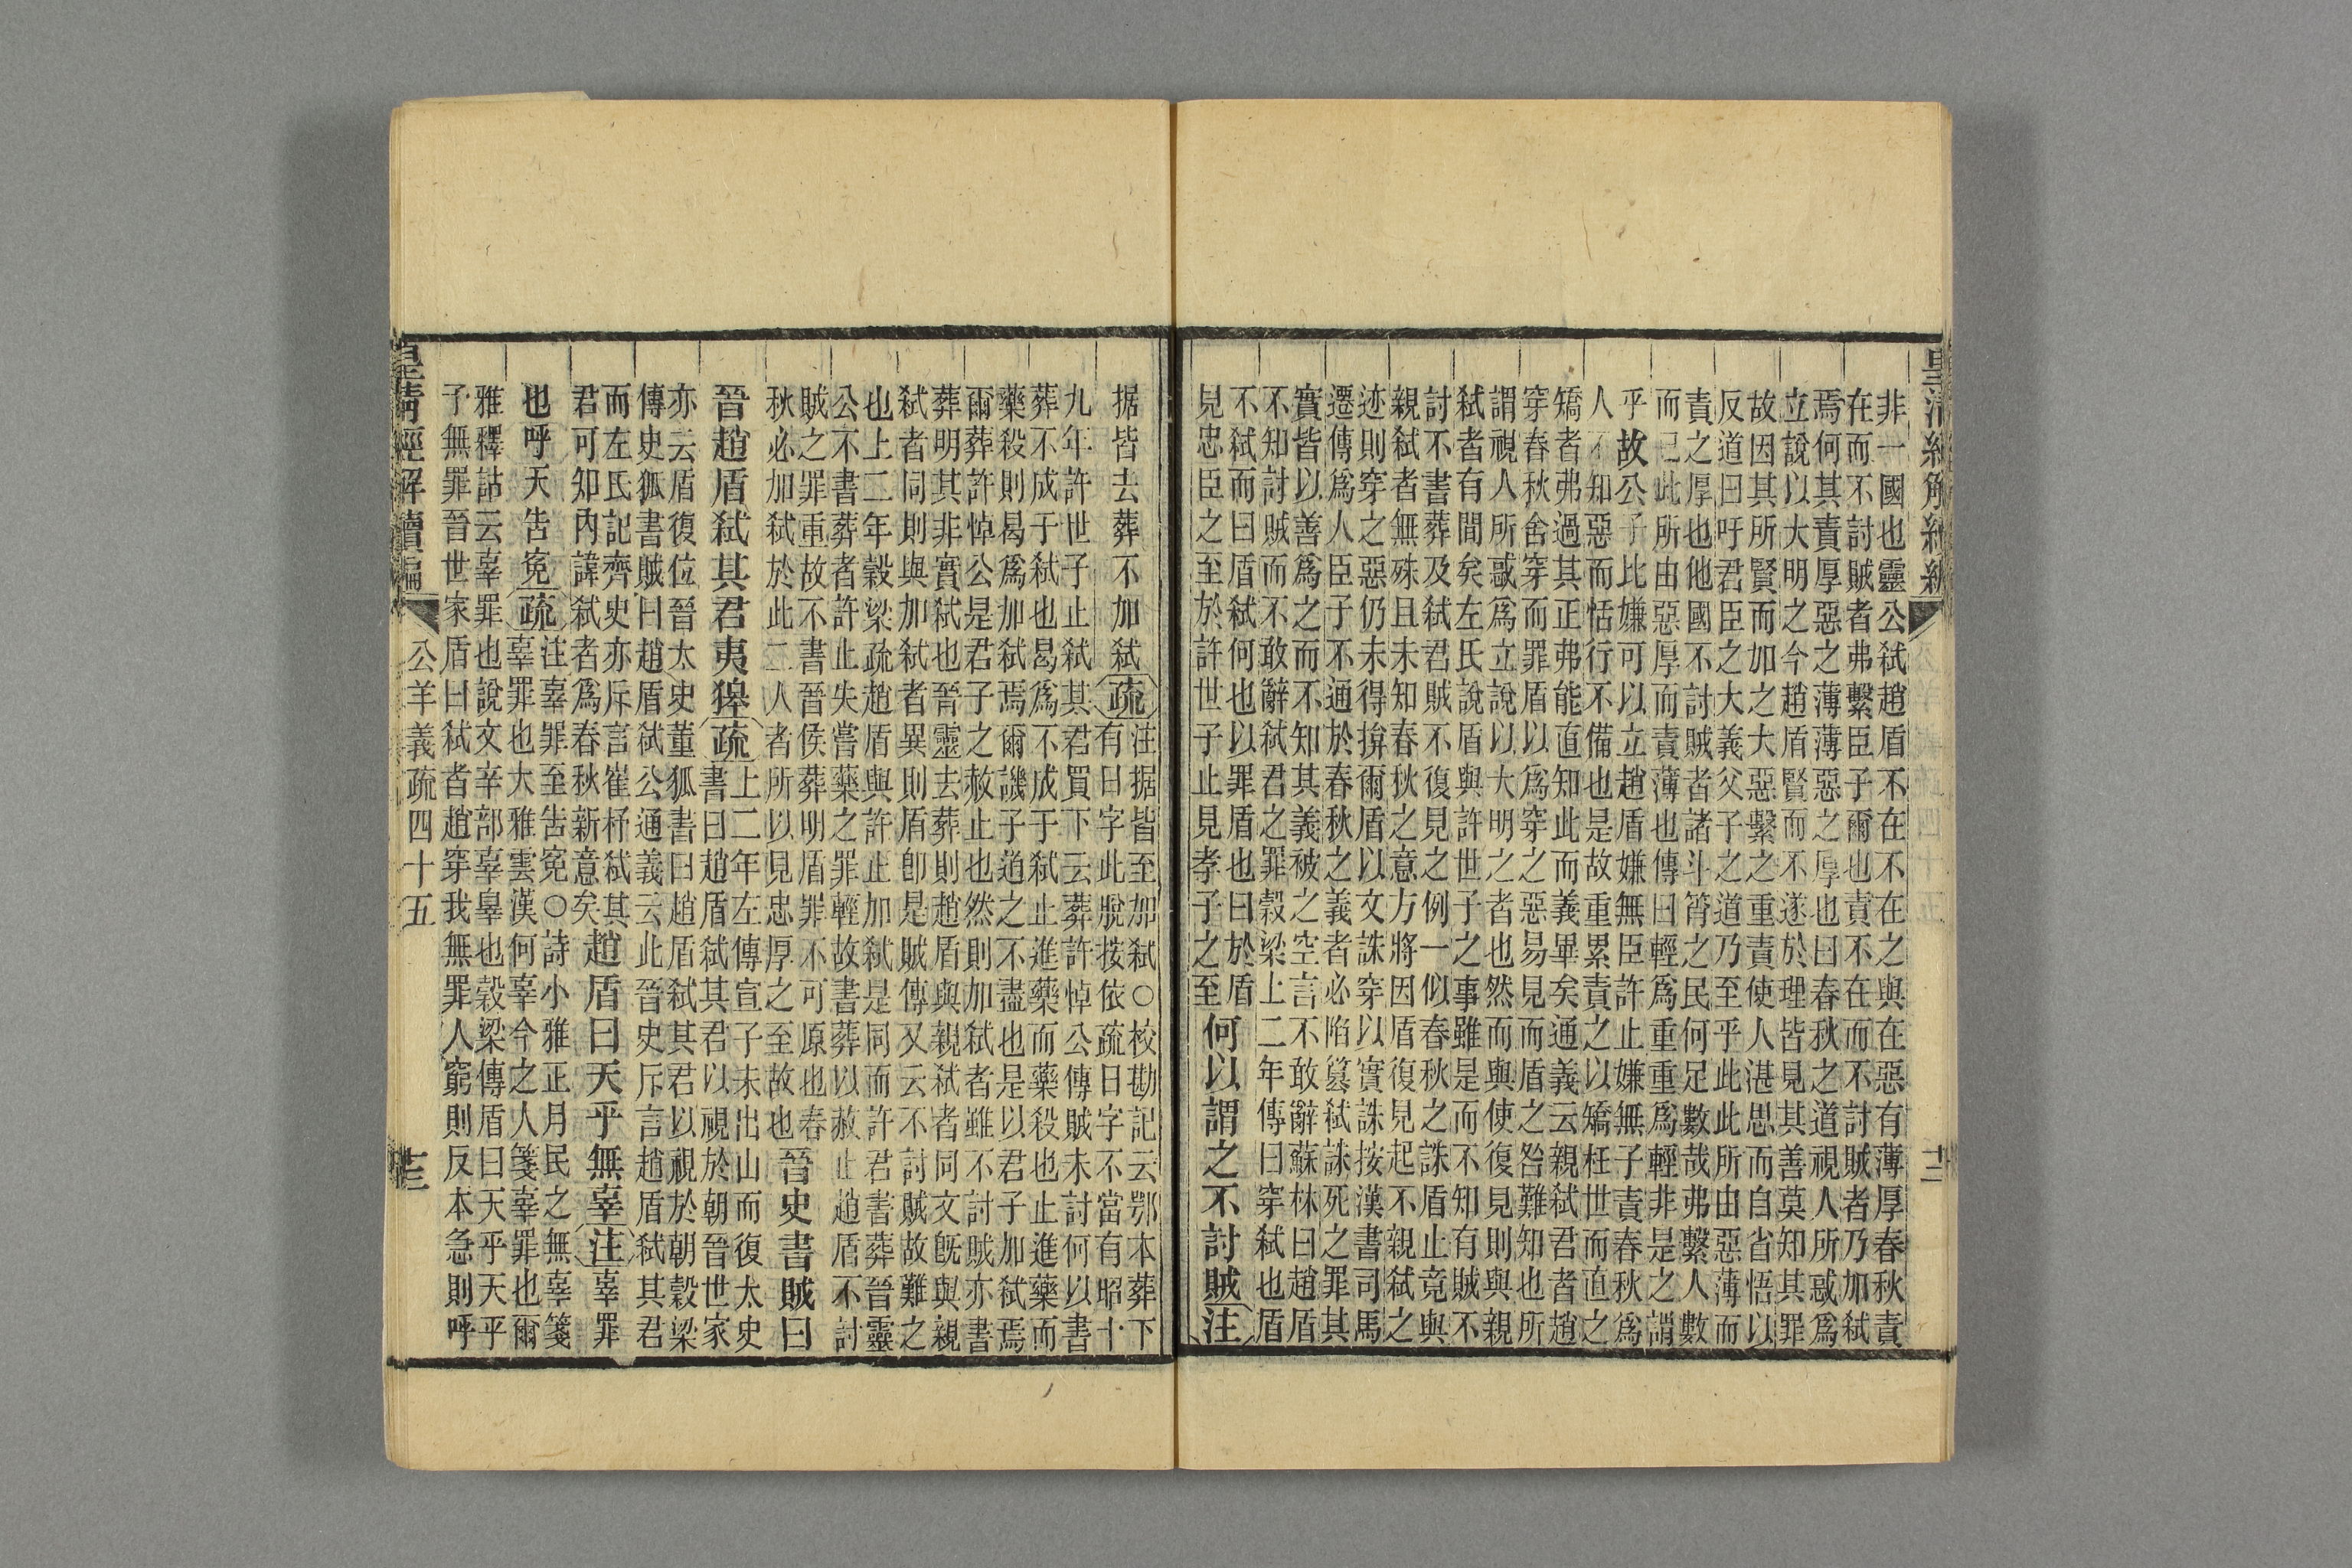 非一國也靈公弒趙盾不在不在之與在惡有薄厚春秋責
在而不討賊者弗繫臣子爾也責不在而不討賊者乃加弒
焉何其責厚惡之薄薄惡之厚也曰春秋之道視人所惑爲
立說以大明之今趙盾賢而不遂於理皆見其善莫知其罪
故因其所賢而加之大惡繫之重責使人湛思而自省悟以
反道曰吁君臣之大義父子之道乃至乎此此所由惡薄而
責之厚也他國不討賊者諸斗筲之民何足數哉弗繫人數
而已此所由惡厚而責薄也傳曰輕爲重重爲輕非是之謂
乎故公子比嫌可以立趙盾嫌無臣許止嫌無子責春秋爲
人不知惡而恬行不備也是故重累責之以矯枉世而直之
矯者弗過其正弗能直知此而義畢矣通義云親弒君者趙
穿春秋舍穿而罪盾以爲穿之惡易見而盾之咎難知也所
謂視人所惑爲立說以大明之者也然而與使復見則與親
弒者有間矣左氏說盾與許世子之事雖是而不知有賊不
討不書葬及弒君賊不復見之例一似春秋之誅盾止竟與
親弒者無殊且未知春秋之意方將因盾復見起不親弒之
迹則穿之惡仍未得揜爾盾以文誅穿以實誅按漢書司馬
遷傳爲人臣子不通於春秋之義者必陷篡弒誅死之罪其
實皆以善爲之而不知其義被之空言不敢辭蘇林曰趙盾
不知討賊而不敢辭弒君之罪穀梁上二年傳曰穿弒也盾
不弒而曰盾弒何也以罪盾也曰於盾
見忠臣之至於許世子止見孝子之至
何以謂之不討賊注
据皆去葬不加弒疏
注据皆至加弒○校勘記云鄂本葬下
有日字此脫按依疏日字不當有昭十
九年許世子止弒其君買下云葬許悼公傳賊未討何以書
葬不成于弒也曷爲不成于弒止進藥而藥殺也止進藥而
藥殺則曷爲加弒焉爾譏子道之不盡也是以君子加弒焉
爾葬許悼公是君子之赦止也然則加弒者雖不討賊亦書
葬明其非實弒也晉靈去葬則趙盾與親弒者同文既與親
弒者同則與加弒者異則盾卽是賊傳又云不討賊故難之
也上二年穀梁疏趙盾與許止加弒是同而許君書葬晉靈
公不書葬者許止失嘗藥之罪輕故書葬以赦止趙盾不討
賊之罪重故不書晉侯葬明盾罪不可原也春
秋必加弒於此二人者所以見忠厚之至故也
晉史書賊曰
晉趙盾弒其君夷獔疏
上二年左傳宣子未出山而復太史
書曰趙盾弒其君以視於朝晉世家
亦云盾復位晉太史董狐書曰趙盾弒其君以視於朝穀梁
傳史狐書賊曰趙盾弒公通義云此晉史斥言趙盾弒其君
而左氏記齊史亦斥言崔杼弒其
君可知內諱弒者爲春秋新意矣
趙盾曰天乎無辜注辜罪
也呼天告冤疏
注辜罪至告冤○詩小雅正月民之無辜箋
辜罪也大雅雲漢何辜今之人箋辜罪也爾
雅釋詁云辜罪也說文辛部辜辠也穀梁傳盾曰天乎天乎
子無罪晉世家盾曰弒者趙穿我無罪人窮則反本急則呼
皇清經解續編
公羊義疏四十五